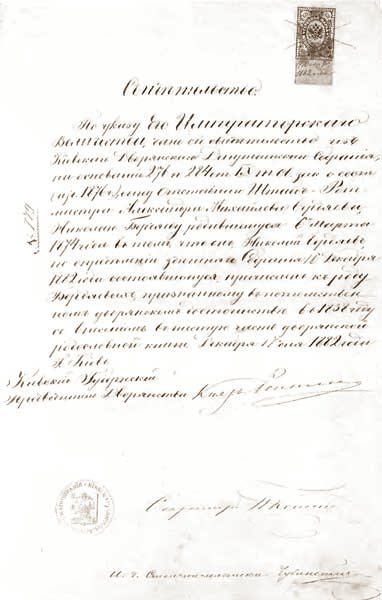 Свидѣтельство.
По указу Его Императорскаго
Величества, дано сіе свидѣтельство изъ
Кіевскаго Дворянскаго Депутатскаго Собранія,
на основаніи 276 и 284 ст. IX т. зак. о сост.
(изд. 1876 г.) сыну Отставнаго Штабъ-Рот-
мистра Александра Михайлова Бердяева,
Николаю Бердяеву родившемуся 6 Марта
1874 года въ томъ, что онъ Николай Бердяевъ,
по опредѣленію здѣшняго Собранія 16 Декабря
1882 года состоявшемуся, причисленъ къ роду
Бердяевыхъ, признанному въ потомствен-
номъ дворянскомъ достоинствѣ въ 1838 году
со внесеніемъ въ шестую часть дворянской
родословной книги. Декабря 18 дня 1882 года
г. Кіевъ
№ 179
Кіевскій Губернскій
Предводитель Дворянства Князь
Секретарь
И. д. Столоначальника